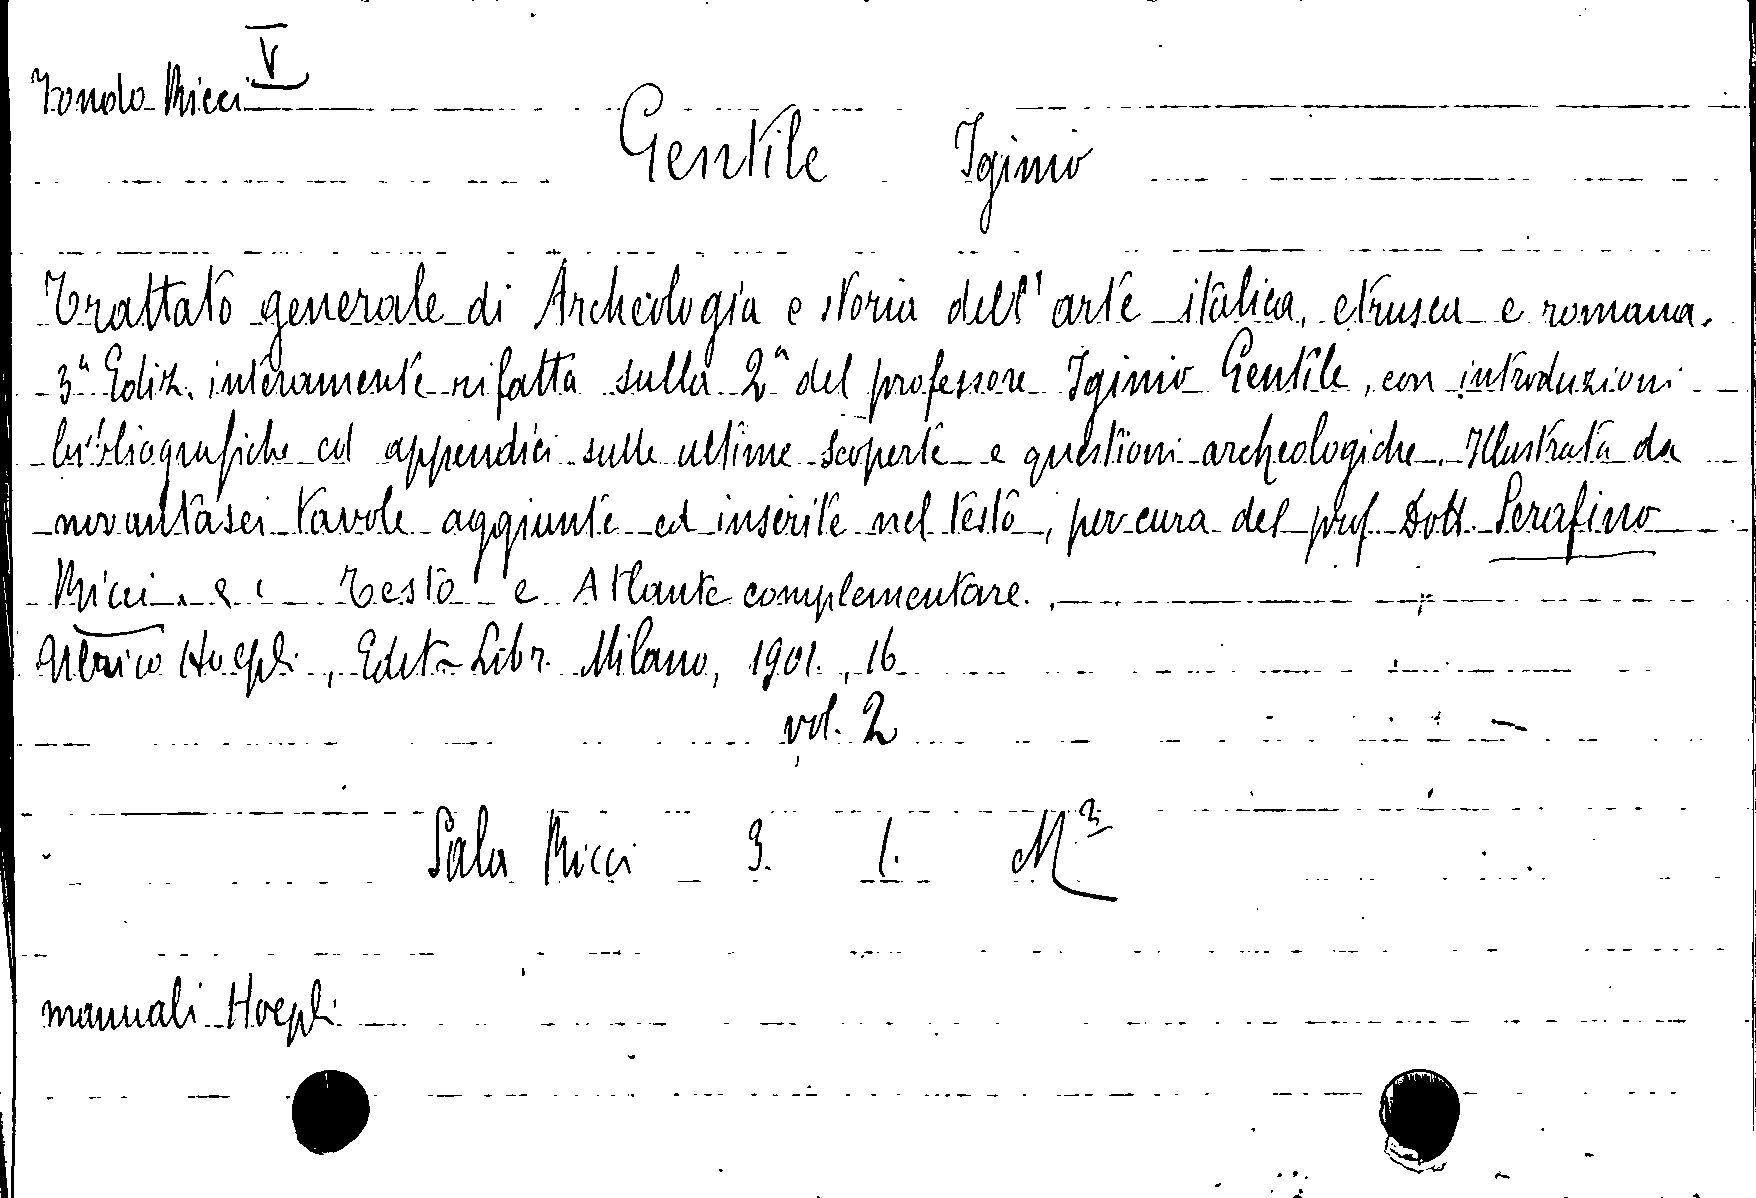 Fondo Ricci V
Gentile Iginio
Trattato generale di Archeologia e storia dell'arte italica, etrusca e romana.
3ª Ediz. interamente rifatta sulla 2ª del professore Iginio Gentile, con introduzioni
bibliografiche ed appendici sulle ultime scoperte e questioni archeologiche. Illustrata da
novantasei tavole aggiunte ed inserite nel testo, per cura del prof. Dott. Serafino
Ricci. Testo e Atlante complementare.
Ulrico Hoepli, Edit-Libr. Milano, 1901., 16
vol. 2
Sala Ricci 3. 1. M³
manuali Hoepli